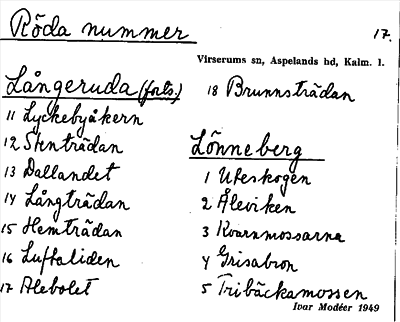 Röda nummer
17.
Virserums sn, Aspelands hd, Kalm. l.
Långeruda (forts.)
11 Lyckebyåkern
12 Stenträdan
13 Dallandet
14 Långträdan
15 Hemträdan
16 Luftaliden
17 Alebolet
18 Brunnsträdan
Lönneberg
1 Uteskogen
2 Åleviken
3 Kvarnmossarna
4 Grisabron
5 Tribäckamossen
Ivar Modéer 1949